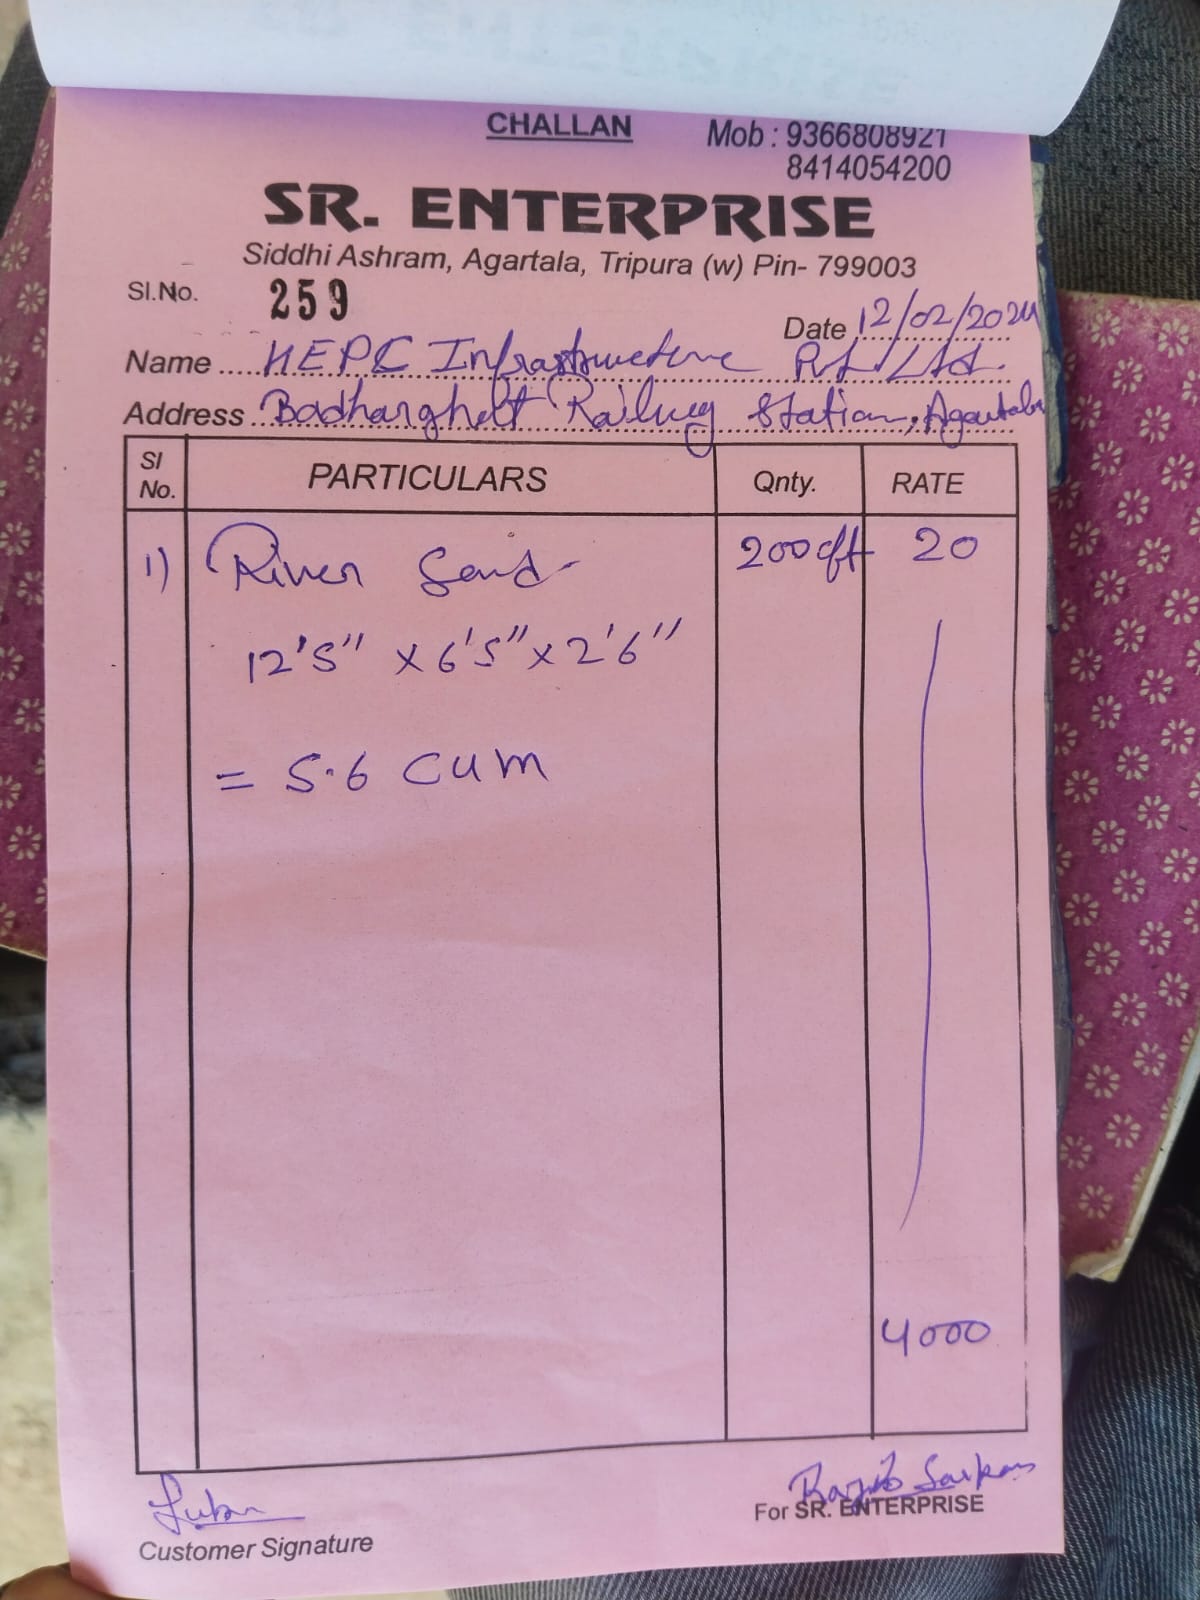 CHALLAN
Mob : 9366808921
8414054200
SR. ENTERPRISE
Siddhi Ashram, Agartala, Tripura (w) Pin- 799003
Sl.No. 259
Date 12/02/2024
Name HEPC Infrastructure Pvt Ltd.
Address Badharghat Railway Station, Agartala
Sl No. PARTICULARS Qnty. RATE
1) River Sand 200 cft 20
12'5" x 6'5" x 2'6"
= 5.6 cum
4000
Rajib Sarkar
For SR. ENTERPRISE
Customer Signature